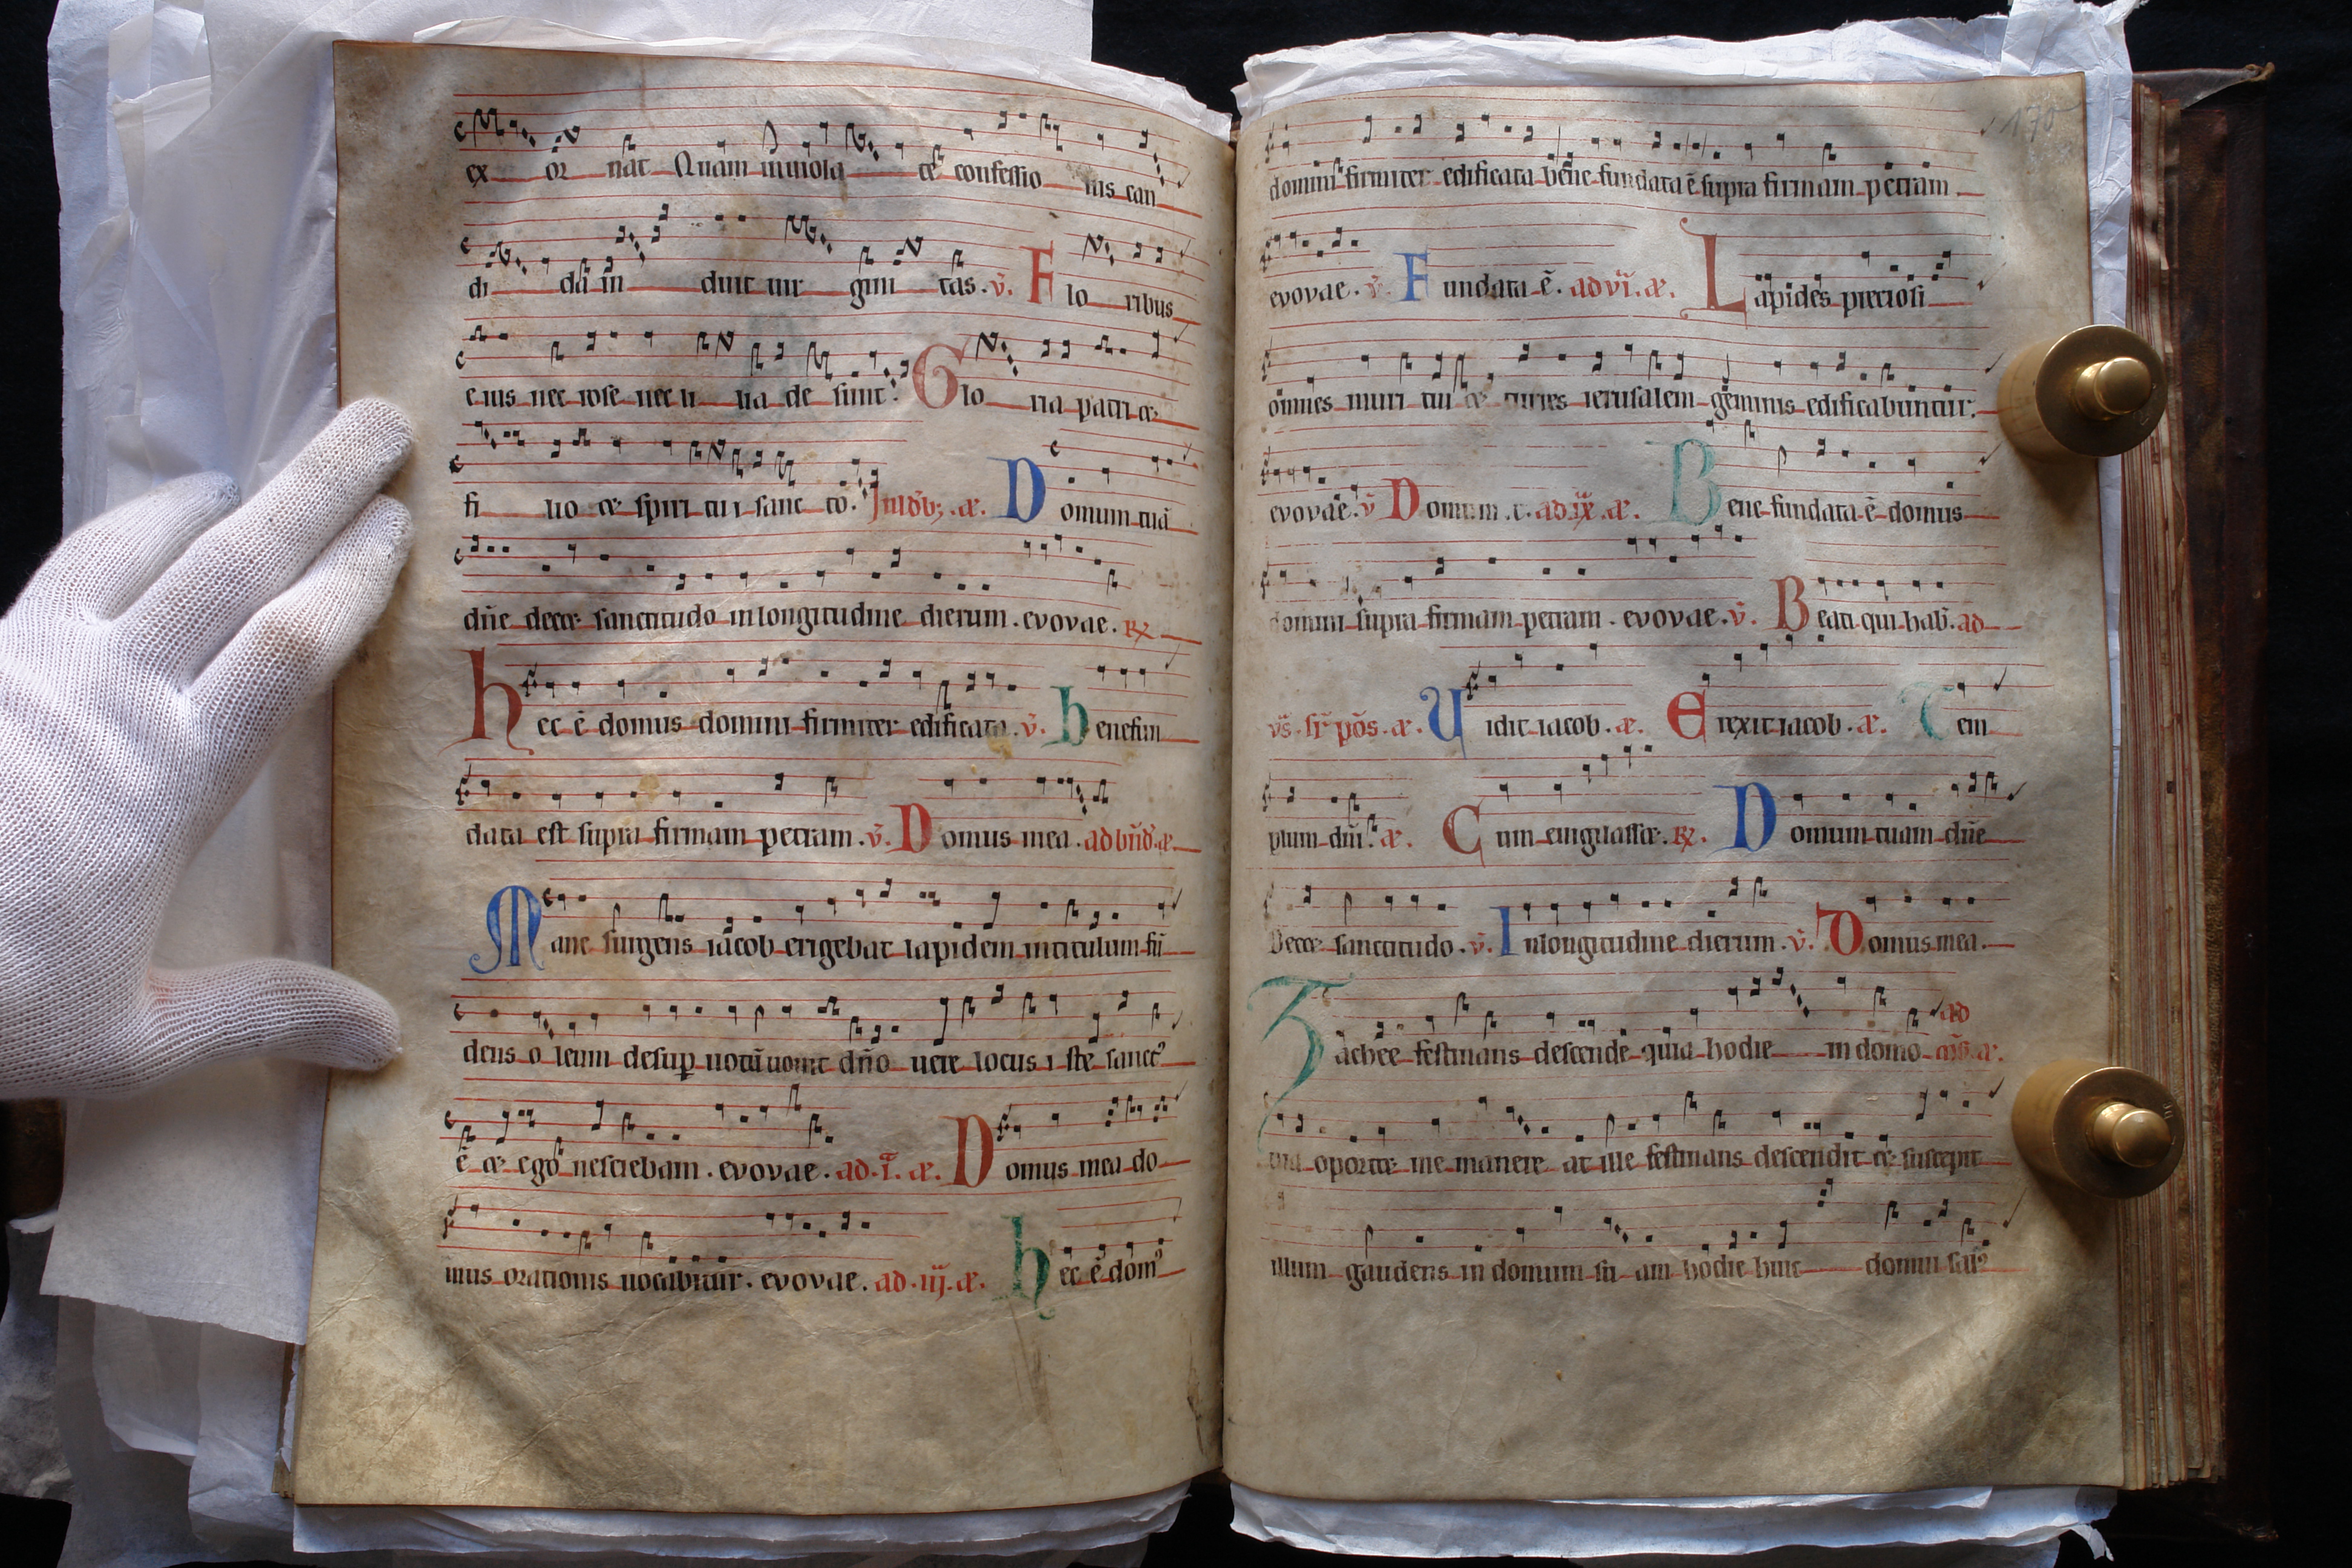 ex or nat Quam inuiola te confessio nis can
di da in duit uir gini tas. v̄. F lo ribus
eius nec rose nec li lia de sunt. Glo ria patri &
fi lio & spiri tui sanc to. D omum tuā
dn̄e decet sanctitudo in longitudine dierum. evovae. R̸
hec ē domus domini firmiter edificata. v̄. benefun
data est supra firmam petram. v̄. Domus mea. ad bn̄d. æ.
Mane surgens iacob erigebat lapidem in titulum fū
dens o leum desup uotū uouit dn̄o uere locus i ste sanctꝰ
ē & ego nesciebam. evovae. ad .i. æ. Domus mea do
mus orationis uocabitur. evovae. ad .iij. æ. hec ē domꝰ
170
domini firmiter edificata bene fundata ē supra firmam petram
evovae. v̄. Fundata ē. ad vi. æ. Lapides preciosi
omnes muri tui & turres ierusalem gemmis edificabuntur.
evovae. v̄ Domum t. ad ix. æ. Bene fundata ē domus
domini supra firmam petram. evovae. v̄. Beati qui hab̄. ad
æ. Uidit iacob. æ. Erexit iacob. æ. Tem
plum dn̄i. æ. Cum euigilasset. R̸. Domum tuam dn̄e
Decet sanctitudo. v̄. In longitudine dierum. v̄. Domus mea.
Zachee festinans descende quia hodie in domo ad
tua oportet me manere at ille festinans descendit & suscepit
illum gaudens in domum su am hodie huic domui salꝰ